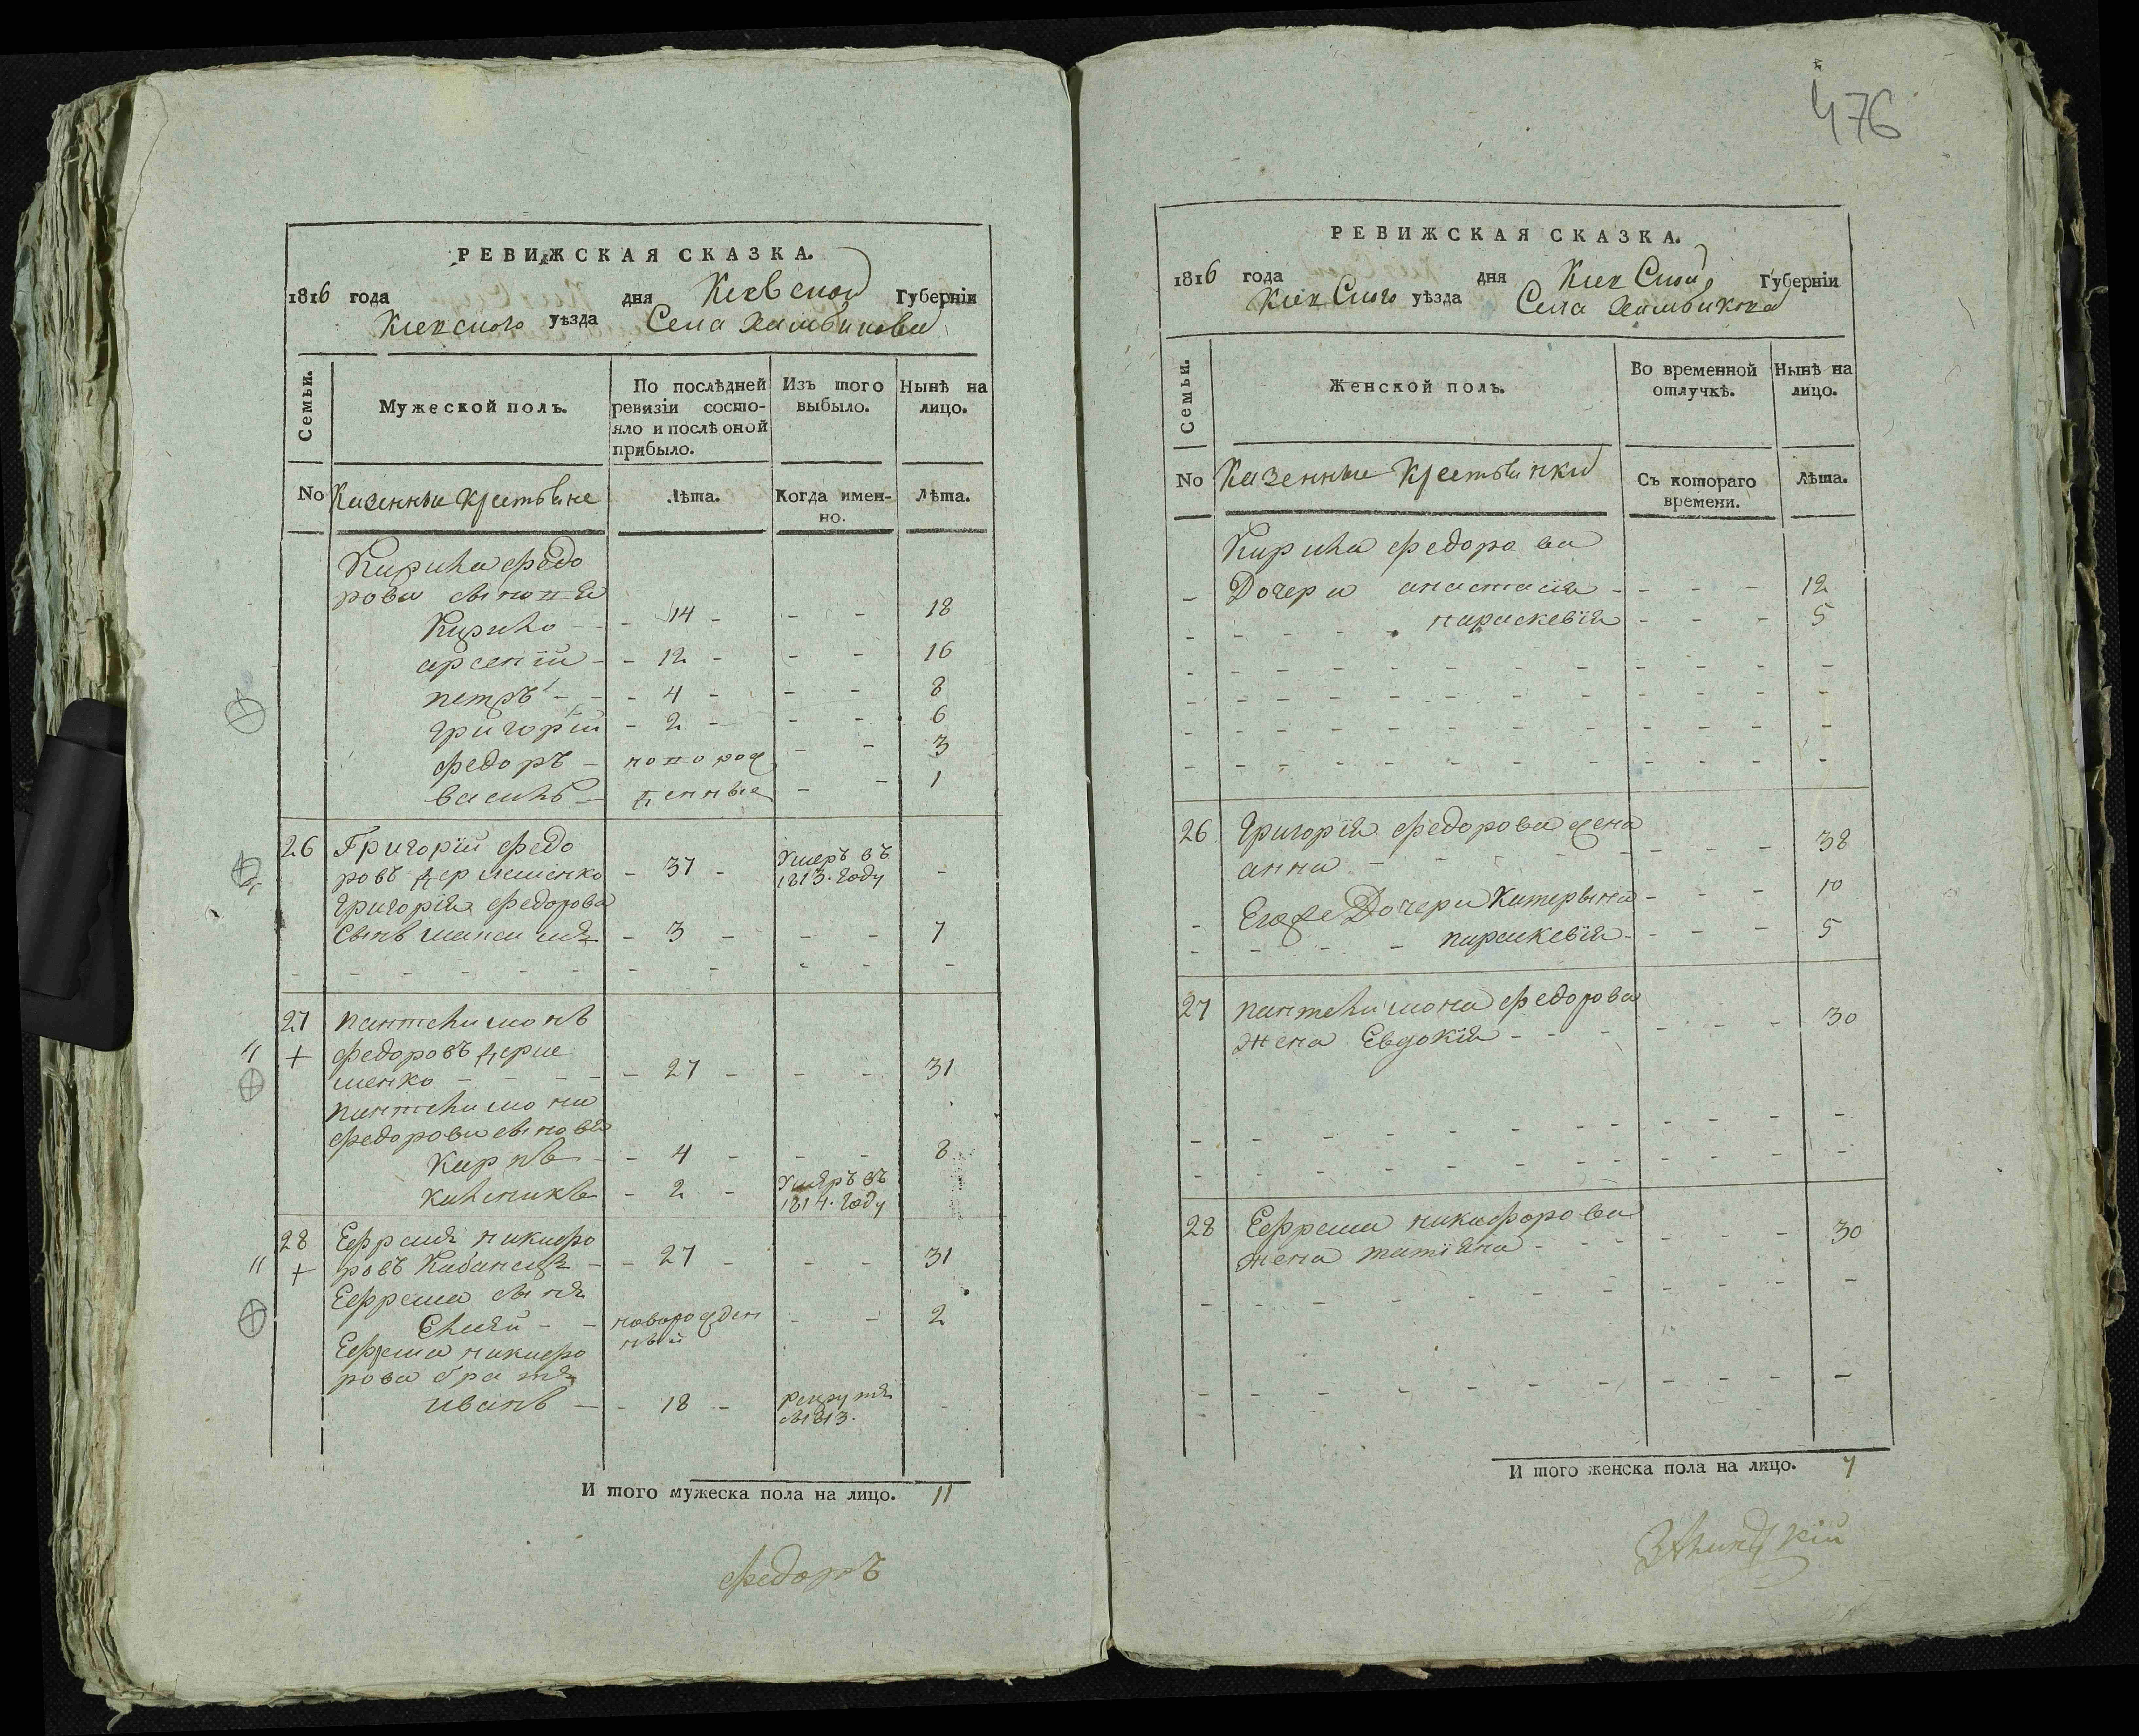 РЕВИЖСКАЯ СКАЗКА.
1816 года дня Киевской Губерніи
Киевского уѣзда Села Хамбикова
Семьи. Мужеской полъ. По послѣдней ревизіи состояло и послѣ оной прибыло. Изъ того выбыло. Нынѣ на лицо.
No Казенные крестьяне Лѣта. Когда именно. Лѣта.
Кирила федо
рова сыновя
Кирило - 14 - - - 18
арсеній - 12 - - - 16
петръ - 4 - - - 8
григорій - 2 - - - 6
федоръ - новорож - - 3
василь - денные - - 1
26 Григорій федо
ровъ - 37 - умеръ въ 1813. году -
григорія федорова
сынъ - 3 - - - 7
27 пантелимонъ
+ федоровъ
менко - 27 - - - 31
пантелимона
федорова сыновя
карпъ - 4 - - - 8
калиникъ - 2 - умеръ въ 1814. году
28 Ефремъ никифо
+ ровъ - 27 - - - 31
Ефрема сынъ
Елисей - новорожден ный - - 2
Ефрема никифо
рова братъ
иванъ - 18 - рекрутъ в 1813. -
И того мужеска пола на лицо. 11
федоръ
476
РЕВИЖСКАЯ СКАЗКА.
1816 года дня Киевской Губерніи
Киевского уѣзда Села Хамбикова
Семьи. Женской полъ. Во временной отлучкѣ. Нынѣ на лицо.
No Казенные крестьянки Съ котораго времени. Лѣта.
Кирила федорова
- Дочери анастасія - - - - 12
параскевія - - - 5
26 григорія федорова жена
анна - - - 38
Его же Дочери Катерына - - - 10
параскевія - - - 5
27 пантелимона федорова
жена Евдокія - - - 30
28 Ефрема никифорова
жена татіяна - - - 30
И того женска пола на лицо. 7